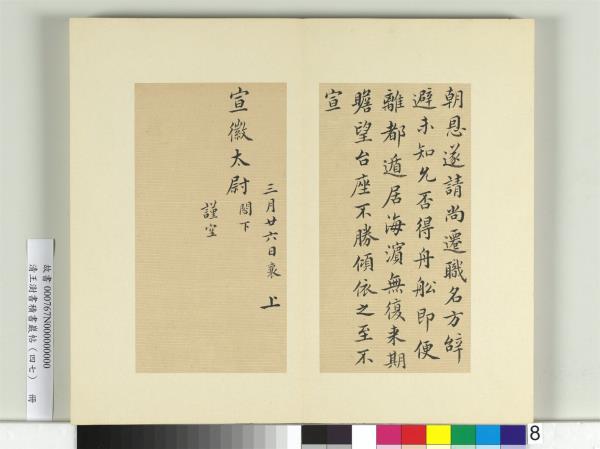 朝恩遂請尚遷職名方辝
避未知允否得舟舩即便
離都遁居海濱無復来期
瞻望台座不勝傾依之至不
宣
三月廿六日襄 上
宣徽太尉 閤下
謹空
故書 000767N000000000
清王澍書積書巖帖(四七) 冊
8